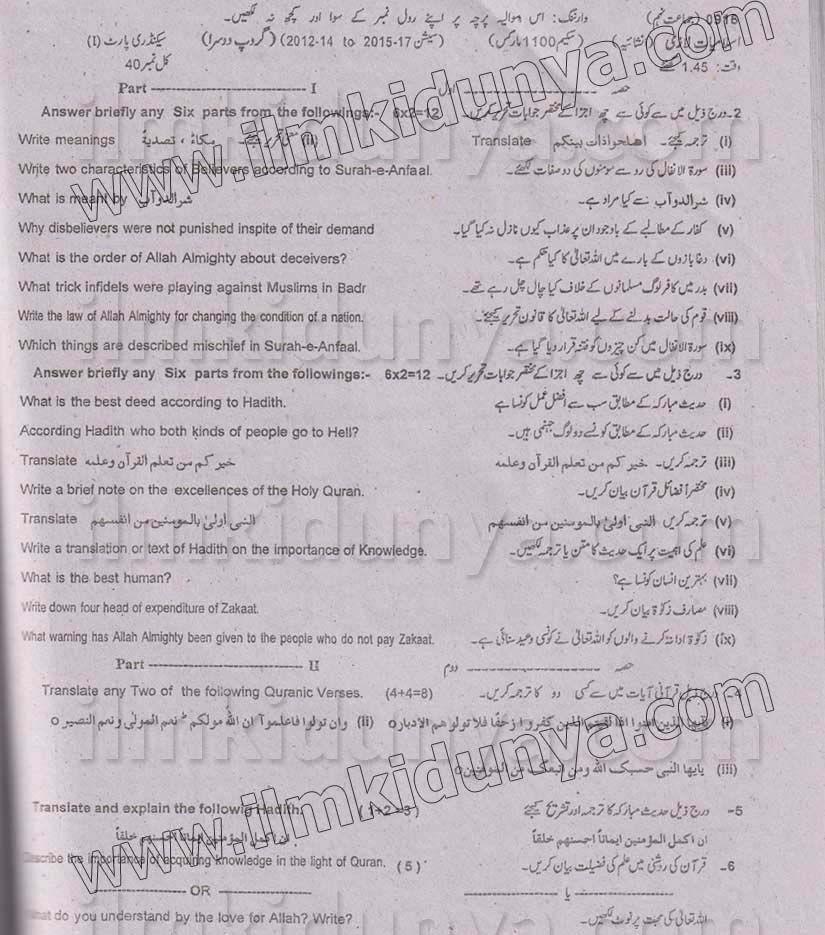 0918 (جماعت نہم) وارننگ: اس سوالیہ پرچہ پر اپنے رول نمبر کے سوا اور کچھ نہ لکھیں۔
اسلامیات لازمی (انشائیہ) (سکیم 1100 مارکس) (سیشن 2012-14 to 2015-17) (گروپ دوسرا) سیکنڈری پارٹ (I)
وقت: 1.45 گھنٹے کل نمبر 40
Part ------ I حصہ ------ اول
Answer briefly any Six parts from the followings:- 6x2=12 2- درج ذیل میں سے کوئی سے چھ اجزا کے مختصر جوابات تحریر کریں۔
Write meanings مکاءً ، تصدیۃً (ii) معنی تحریر کیجئے۔ Translate (i) ترجمہ کیجئے۔
Write two characteristics of Believers according to Surah-e-Anfaal. (iii) سورۃ الانفال کی رو سے مومنوں کی دو صفات لکھئے۔
What is meant by شرالدوآب (iv) شرالدوآب سے کیا مراد ہے۔
Why disbelievers were not punished inspite of their demand (v) کفار کے مطالبے کے باوجود ان پر عذاب کیوں نازل نہ کیا گیا۔
What is the order of Allah Almighty about deceivers? (vi) دغا بازوں کے بارے میں اللہ تعالٰی کا کیا حکم ہے۔
What trick infidels were playing against Muslims in Badr (vii) بدر میں کافر لوگ مسلمانوں کے خلاف کیا چال چل رہے تھے۔
Write the law of Allah Almighty for changing the condition of a nation. (viii) قوم کی حالت بدلنے کے لیے اللہ تعالٰی کا قانون تحریر کیجئے۔
Which things are described mischief in Surah-e-Anfaal. (ix) سورۃ الانفال میں کن چیزوں کو فتنہ قرار دیا گیا ہے۔
Answer briefly any Six parts from the followings:- 6x2=12 3- درج ذیل میں سے کوئی سے چھ اجزا کے مختصر جوابات تحریر کریں۔
What is the best deed according to Hadith. (i) حدیث مبارکہ کے مطابق سب سے افضل عمل کونسا ہے
According Hadith who both kinds of people go to Hell? (ii) حدیث مبارکہ کے مطابق کونسے دو لوگ جہنمی ہیں۔
Translate خیر کم من تعلم القرآن وعلمه (iii) ترجمہ کریں۔ خیر کم من تعلم القرآن وعلمه
Write a brief note on the excellences of the Holy Quran. (iv) مختصراً فضائل قرآن بیان کریں۔
Translate النبی اولیٰ بالمومنین من انفسهم (v) ترجمہ کریں النبی اولیٰ بالمومنین من انفسهم
Write a translation or text of Hadith on the importance of Knowledge. (vi) علم کی اہمیت پر ایک حدیث کا متن یا ترجمہ لکھیں۔
What is the best human? (vii) بہترین انسان کونسا ہے؟
Write down four head of expenditure of Zakaat. (viii) مصارف زکوٰۃ بیان کریں۔
What warning has Allah Almighty been given to the people who do not pay Zakaat. (ix) زکوٰۃ ادا نہ کرنے والوں کو اللہ تعالٰی نے کونسی وعید سنائی ہے۔
Part ------ II حصہ ------ دوم
Translate any Two of the following Quranic Verses. (4+4=8) 4- درج ذیل قرآنی آیات میں سے کسی دو کا ترجمہ کریں۔
(i) یایها الذین امنوا اذا لقیتم الذین کفروا زحفا فلا تولوهم الادبار٥ (ii) وان تولوا فاعلموآ ان الله مولکم نعم المولٰی ونعم النصیر٥
(iii) یایها النبی حسبک الله ومن اتبعک من المومنین٥
Translate and explain the followig Hadith. (1+2=3) 5- درج ذیل حدیث مبارکہ کا ترجمہ اور تشریح کیجئے
ان اکمل المؤمنین ایماناً احسنهم خلقاً ان اکمل المؤمنین ایماناً احسنهم خلقاً
Describe the importance of acquiring knowledge in the light of Quran. (5) 6- قرآن کی روشنی میں علم کی فضیلت بیان کریں۔
------ OR ------ ------ یا ------
What do you understand by the love for Allah? Write? اللہ تعالٰی کی محبت پر نوٹ لکھیں۔
www.ilmkidunya.com
www.ilmkidunya.com
ilmkidunya.com
ilmkidunya.com
ilmkidunya.com
ilmkidunya.com
ilmkidunya.com